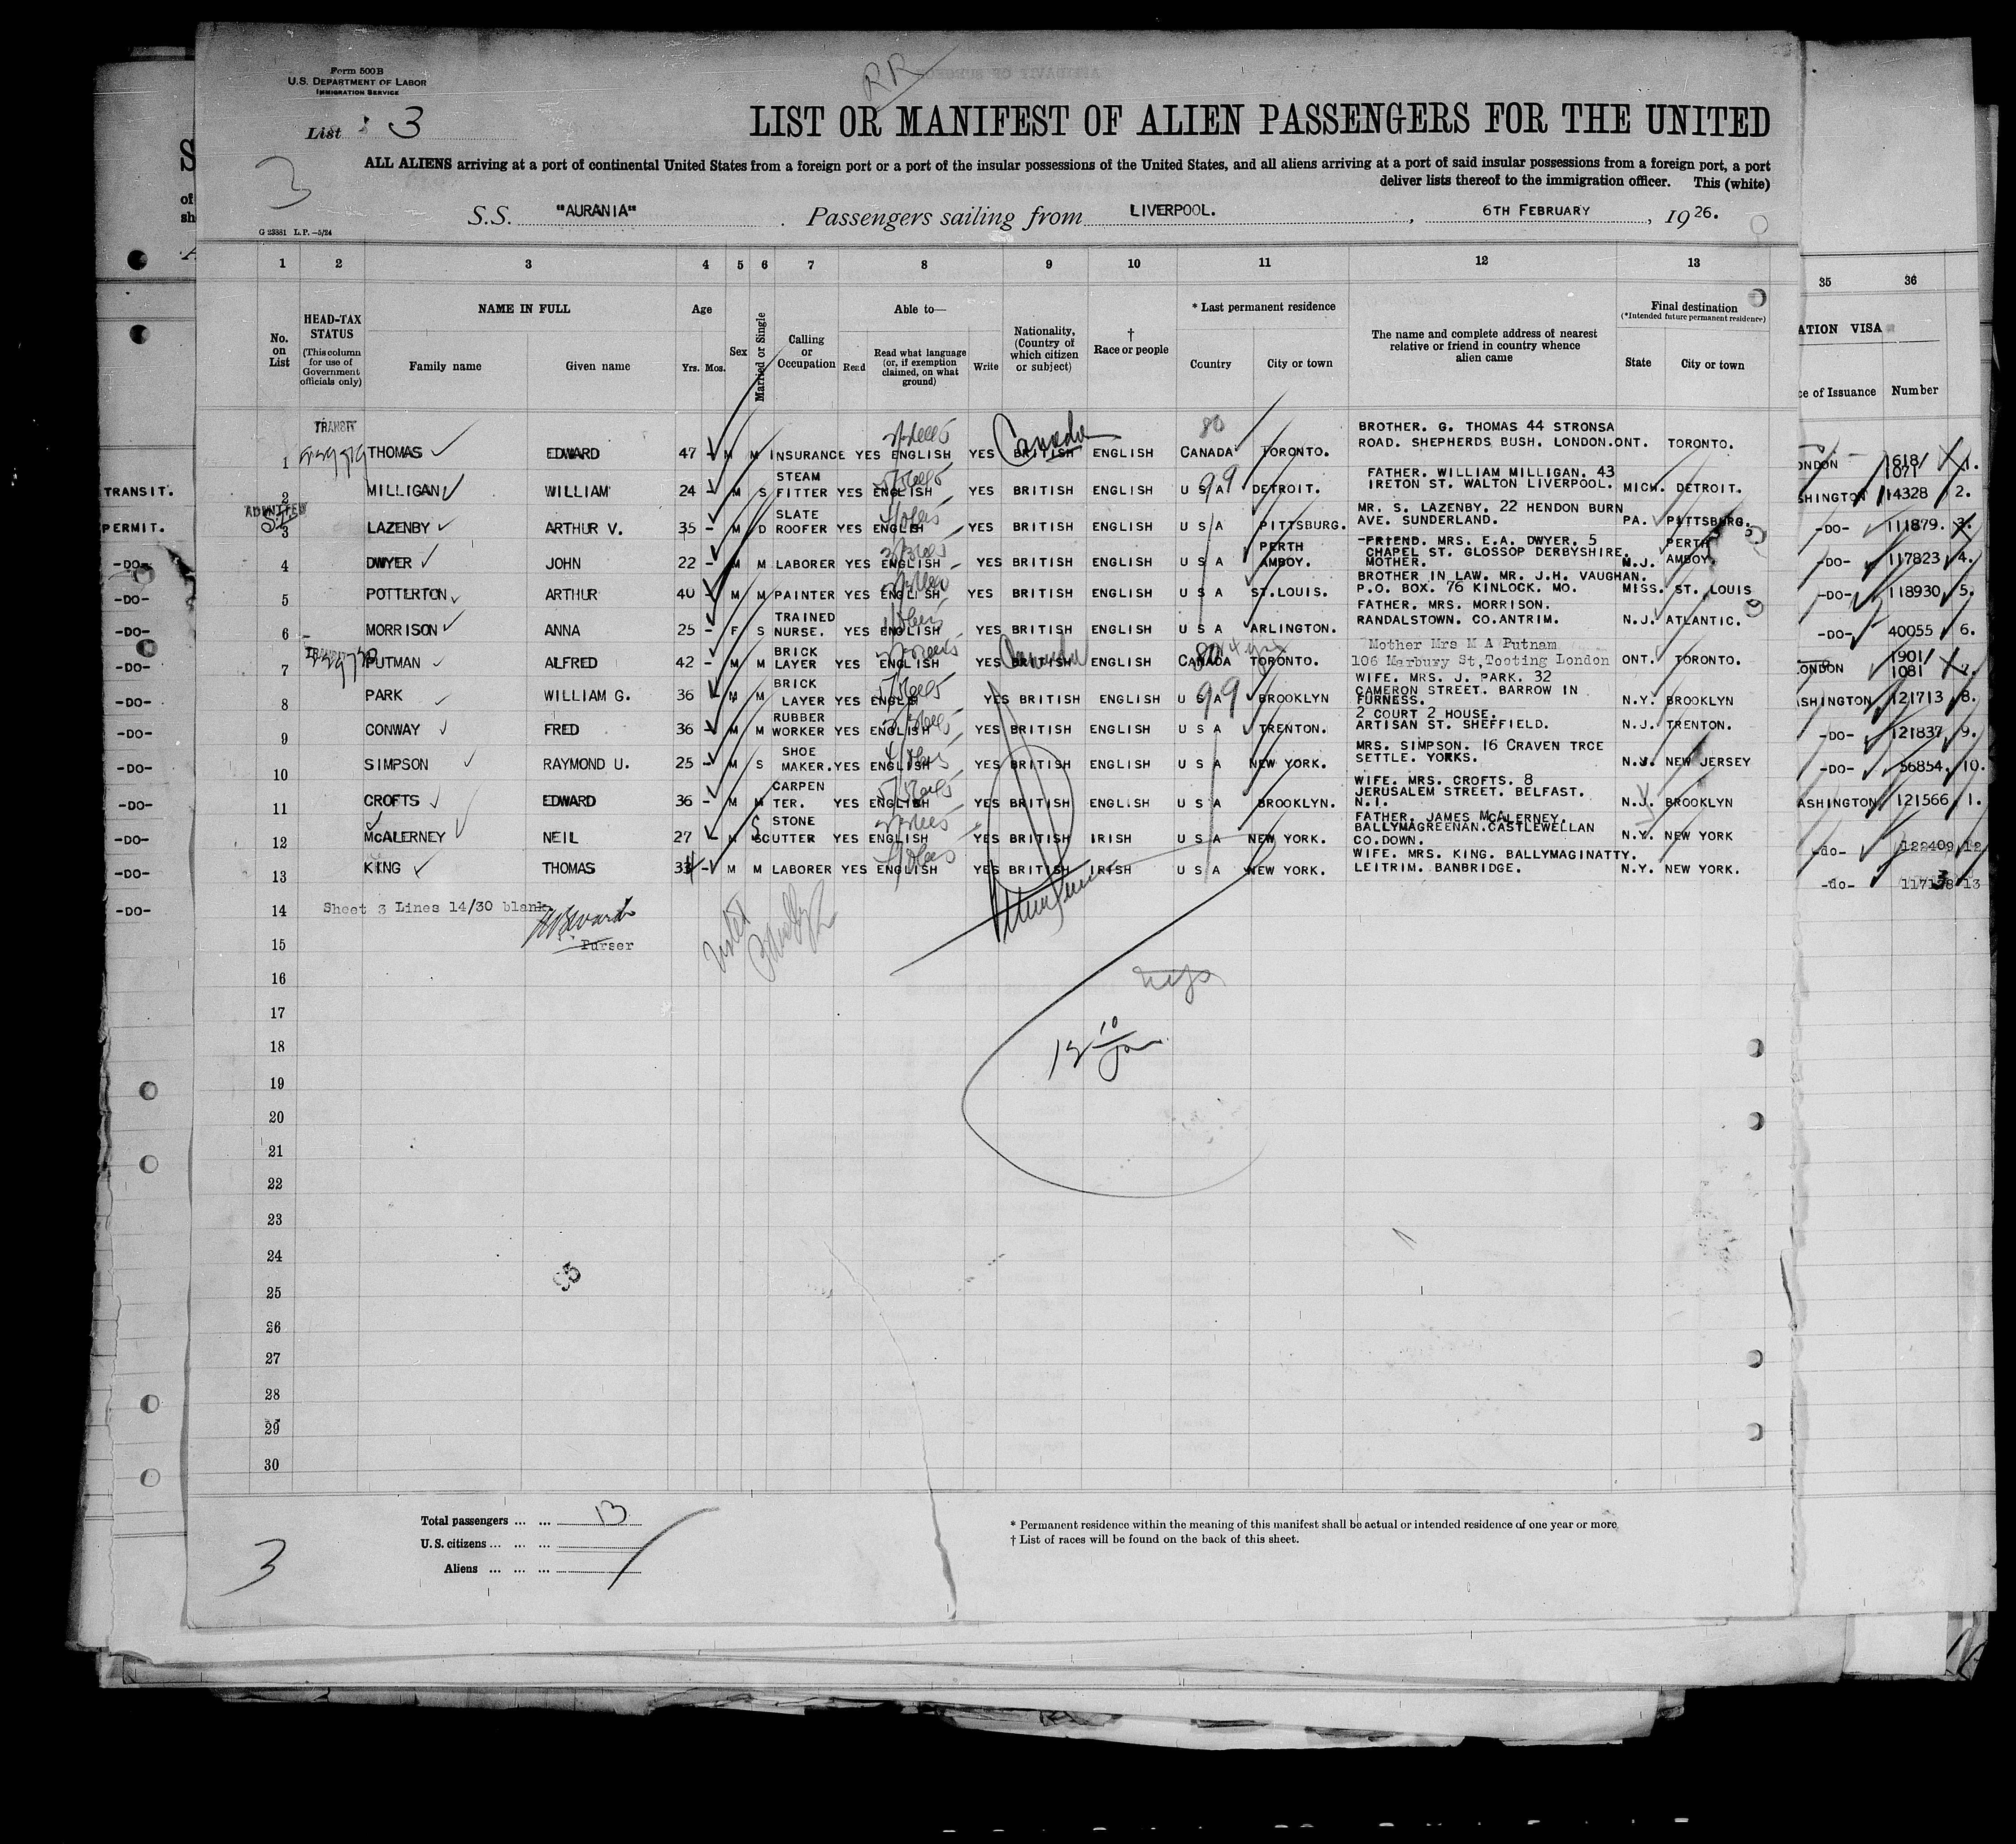 Form 500 B
U.S. DEPARTMENT OF LABOR
IMMIGRATION SERVICE
RR
List 3
3
LIST OR MANIFEST OF ALIEN PASSENGERS FOR THE UNITED
ALL ALIENS arriving at a port of continental United States from a foreign port or a port of the insular possessions of the United States, and all aliens arriving at a port of said insular possessions from a foreign port, a port
deliver lists thereof to the immigration officer. This (white)
S.S. "AURANIA" . Passengers sailing from LIVERPOOL. , 6TH FEBRUARY , 19 26.
G 23881 L.P.—5/24
1 2 3 4 5 6 7 8 9 10 11 12 13 35 36
No. on List
HEAD-TAX STATUS (This column for use of Government officials only)
NAME IN FULL Family name Given name
Age Yrs. Mos.
Sex
Married or Single
Calling or Occupation
Able to— Read Read what language (or, if exemption claimed, on what ground) Write
Nationality, (Country of which citizen or subject)
† Race or people
* Last permanent residence Country City or town
The name and complete address of nearest relative or friend in country whence alien came
Final destination (*Intended future permanent residence) State City or town
ATION VISA
ce of Issuance Number
TRANSIT
1 THOMAS EDWARD 47 - M M INSURANCE YES ENGLISH YES BRITISH Canada ENGLISH 80 CANADA TORONTO. BROTHER. G. THOMAS 44 STRONSA ROAD. SHEPHERDS BUSH. LONDON. ONT. TORONTO. ONDON 1618/ 1071 1.
TRANSIT. 2 MILLIGAN WILLIAM 24 - M S STEAM FITTER YES ENGLISH YES BRITISH ENGLISH U S A 99 DETROIT. FATHER. WILLIAM MILLIGAN. 43 IRETON ST. WALTON LIVERPOOL. MICH. DETROIT. SHINGTON 14328 2.
ADMITTED
PERMIT. 3 LAZENBY ARTHUR V. 35 - M D SLATE ROOFER YES ENGLISH YES BRITISH ENGLISH U S A PITTSBURG. MR. S. LAZENBY. 22 HENDON BURN AVE. SUNDERLAND. PA. PITTSBURG. -DO- 111879. 3.
-DO- 4 DWYER JOHN 22 - M M LABORER YES ENGLISH YES BRITISH ENGLISH U S A PERTH AMBOY. FRIEND. MRS. E.A. DWYER. 5 CHAPEL ST. GLOSSOP DERBYSHIRE. MOTHER. N.J. PERTH AMBOY. -DO- 117823 4.
-DO- 5 POTTERTON ARTHUR 40 - M M PAINTER YES ENGLISH YES BRITISH ENGLISH U S A ST.LOUIS. BROTHER IN LAW. MR. J.H. VAUGHAN. P.O. BOX. 76 KINLOCK. MO. MISS. ST. LOUIS -DO- 118930 5.
-DO- 6 MORRISON ANNA 25 - F S TRAINED NURSE. YES ENGLISH YES BRITISH ENGLISH U S A ARLINGTON. FATHER. MRS. MORRISON. RANDALSTOWN. CO.ANTRIM. N.J. ATLANTIC. -DO- 40055 6.
TRANSIT
-DO- 7 PUTMAN ALFRED 42 - M M BRICK LAYER YES ENGLISH YES BRITISH Canada ENGLISH 80 CANADA TORONTO. Mother Mrs M A Putnam 106 Marbury St,Tooting London ONT. TORONTO. ONDON 1901/ 1081 7.
-DO- 8 PARK WILLIAM G. 36 - M M BRICK LAYER YES ENGLISH YES BRITISH ENGLISH U S A 99 BROOKLYN WIFE. MRS. J. PARK. 32 CAMERON STREET. BARROW IN FURNESS. N.Y. BROOKLYN ASHINGTON 121713 8.
-DO- 9 CONWAY FRED 36 - M M RUBBER WORKER YES ENGLISH YES BRITISH ENGLISH U S A TRENTON. 2 COURT 2 HOUSE. ARTISAN ST. SHEFFIELD. N.J. TRENTON. -DO- 121837 9.
-DO- 10 SIMPSON RAYMOND U. 25 - M S SHOE MAKER. YES ENGLISH YES BRITISH ENGLISH U S A NEW YORK. MRS. SIMPSON. 16 CRAVEN TRCE SETTLE. YORKS. NEW JERSEY -DO- 56854 10.
-DO- 11 CROFTS EDWARD 36 - M M CARPEN TER. YES ENGLISH YES BRITISH ENGLISH U S A BROOKLYN. WIFE. MRS. CROFTS. 8 JERUSALEM STREET. BELFAST. N.I. N.J. BROOKLYN ASHINGTON 121566 1.
-DO- 12 McALERNEY NEIL 27 M S STONE CUTTER YES ENGLISH YES BRITISH IRISH U S A NEW YORK. FATHER. JAMES McALERNEY. BALLYMAGREENAN.CASTLEWELLAN CO.DOWN. N.Y. NEW YORK -do- 122409 12
-DO- 13 KING THOMAS 33 - M M LABORER YES ENGLISH YES BRITISH IRISH U S A NEW YORK. WIFE. MRS. KING. BALLYMAGINATTY. LEITRIM. BANBRIDGE. N.Y. NEW YORK. -do- 13
-DO- 14 Sheet 3 Lines 14/30 blank
15 Purser
16
17
18
19
20
21
22
23
24
25
26
27
28
29
30
95
Total passengers ... ... 13
U.S. citizens ... ... ...
Aliens ... ... ...
3
* Permanent residence within the meaning of this manifest shall be actual or intended residence of one year or more
† List of races will be found on the back of this sheet.